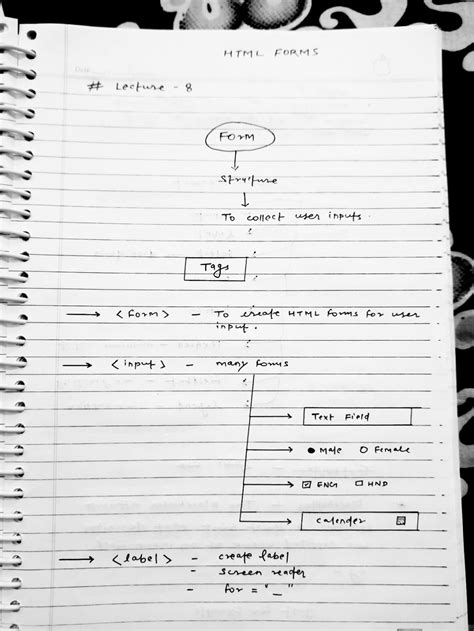 HTML FORMS
# Lecture - 8
Form
Structure
To collect user inputs.
Tags
→ <form> - To create HTML forms for user
input.
→ <input> - many forms
→ Text Field
→ ● Male ○ Female
→ ☑ ENG ☐ HND
→ calender
→ <label> - create label
- screen reader
- for = "_"